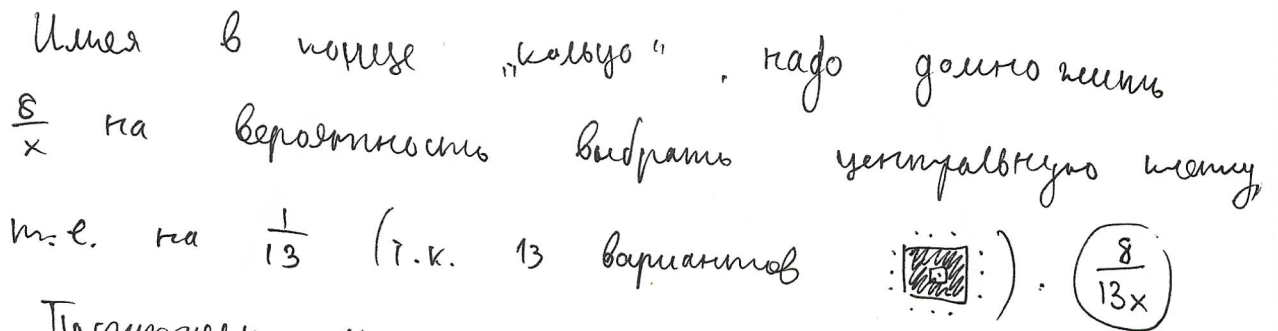 Имея в конце „кольцо“, надо домножить
8/x на вероятность выбрать центральную клетку,
т.е. на 1/13 (т.к. 13 вариантов ). 8/13x